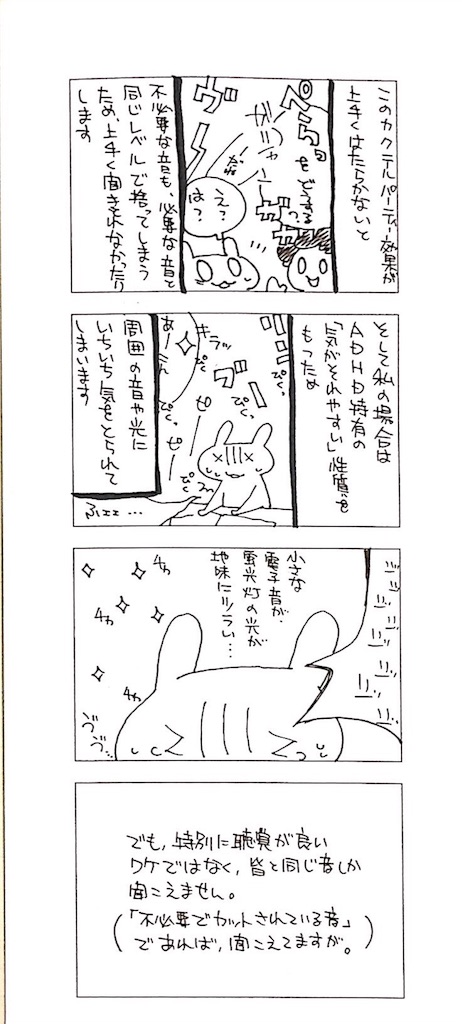 このカクテルパーティー効果が
上手くはたらかないと
ヴーー
ザ
ザ
え？
は？
不必要な音も、必要な音と
同じレベルで捨ってしまう
ため、上手く聞きとれなかったり
します
そして私の場合は
ADHD特有の
「気がそれやすい」性質を
もつため
キラッ
ブーー
ぴく。
ぴく。
ピ
ピ
ふェェ…
周囲の音や光に
いちいち気をとられて
しまいます
小さな
電子音が、
蛍光灯の光が
地味にツラい…
チカ
チカ
チカ
ヴヴ…
でも、特別に聴覚が良い
ワケではなく、皆と同じ音しか
聞こえません。
（「不必要でカットされている音」
であれば、聞こえてますが。）